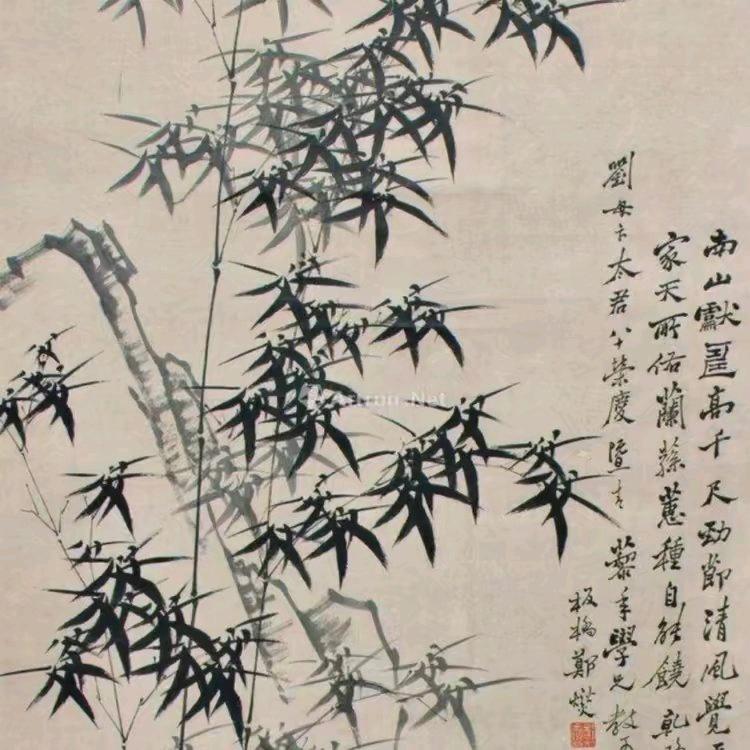 南山獻壽高千尺勁節清風覺
家天所佑蘭蓀蕙種自能饒乾
劉母卞太君八十榮慶暨青藜年學兄教
板橋鄭燮
Artron.Net